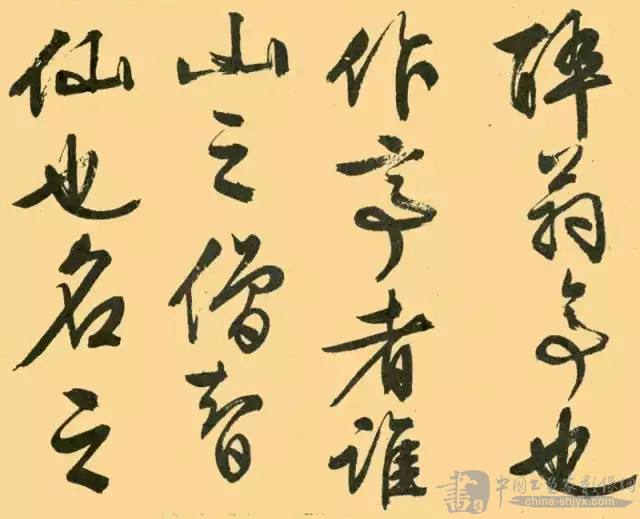 醉翁亭也
作亭者谁
山之僧智
仙也名之
書
中国书画家影像网
china-shjyx.com